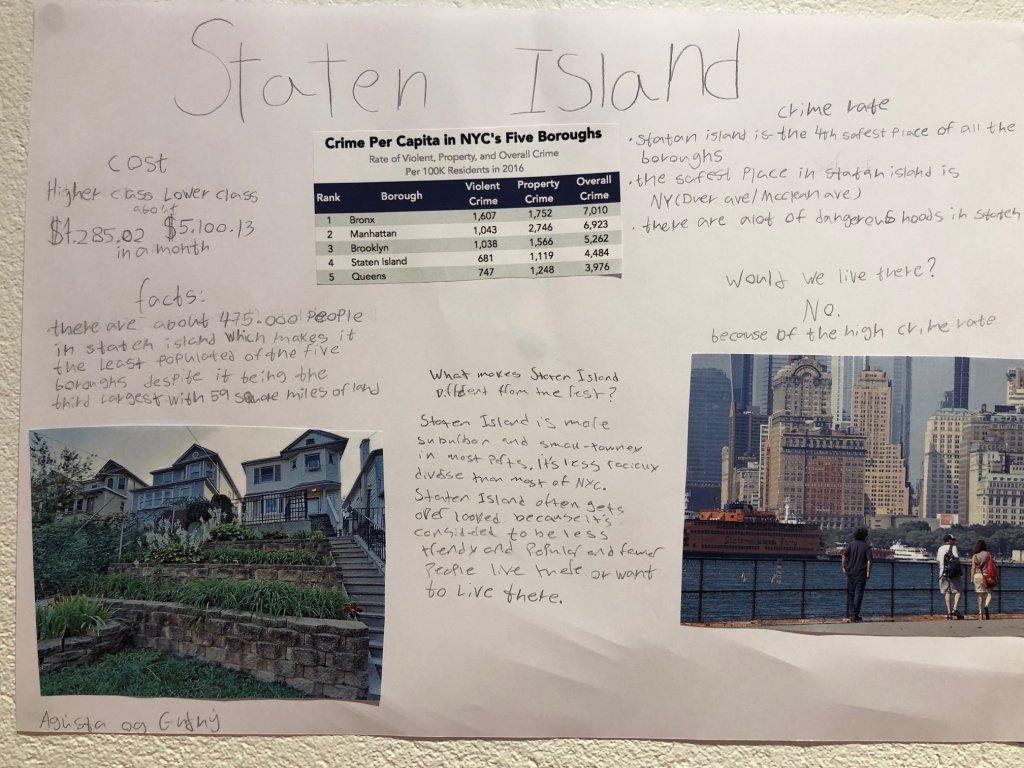 Staten Island
cost
Higher class Lower class
about
$1.285.02 $5.100.13
in a month
facts:
there are about 475.000 People
in staten island which makes it
the least populated of the five
boroughs despite it being the
third largest with 59 square miles of land
Crime Per Capita in NYC's Five Boroughs
Rate of Violent, Property, and Overall Crime
Per 100K Residents in 2016
Rank Borough Violent Crime Property Crime Overall Crime
1 Bronx 1,607 1,752 7,010
2 Manhattan 1,043 2,746 6,923
3 Brooklyn 1,038 1,566 5,262
4 Staten Island 681 1,119 4,484
5 Queens 747 1,248 3,976
crime rate
• Statan island is the 4th safest Place of all the
boroughs
• the safest Place in Statan island is
NY(Duer ave/Mcclean ave)
• there are alot of dangerous hoods in staten
Would we live there?
No.
because of the high crime rate
What makes Staten Island
Different from the rest?
Staten Island is more
suburban and small-towney
in most Parts, it's less
diverse than most of NYC.
Staten Island often gets
over looked because it's
considered to be less
trendy and Popular and fewer
People live there or want
to Live there.
Agústa og